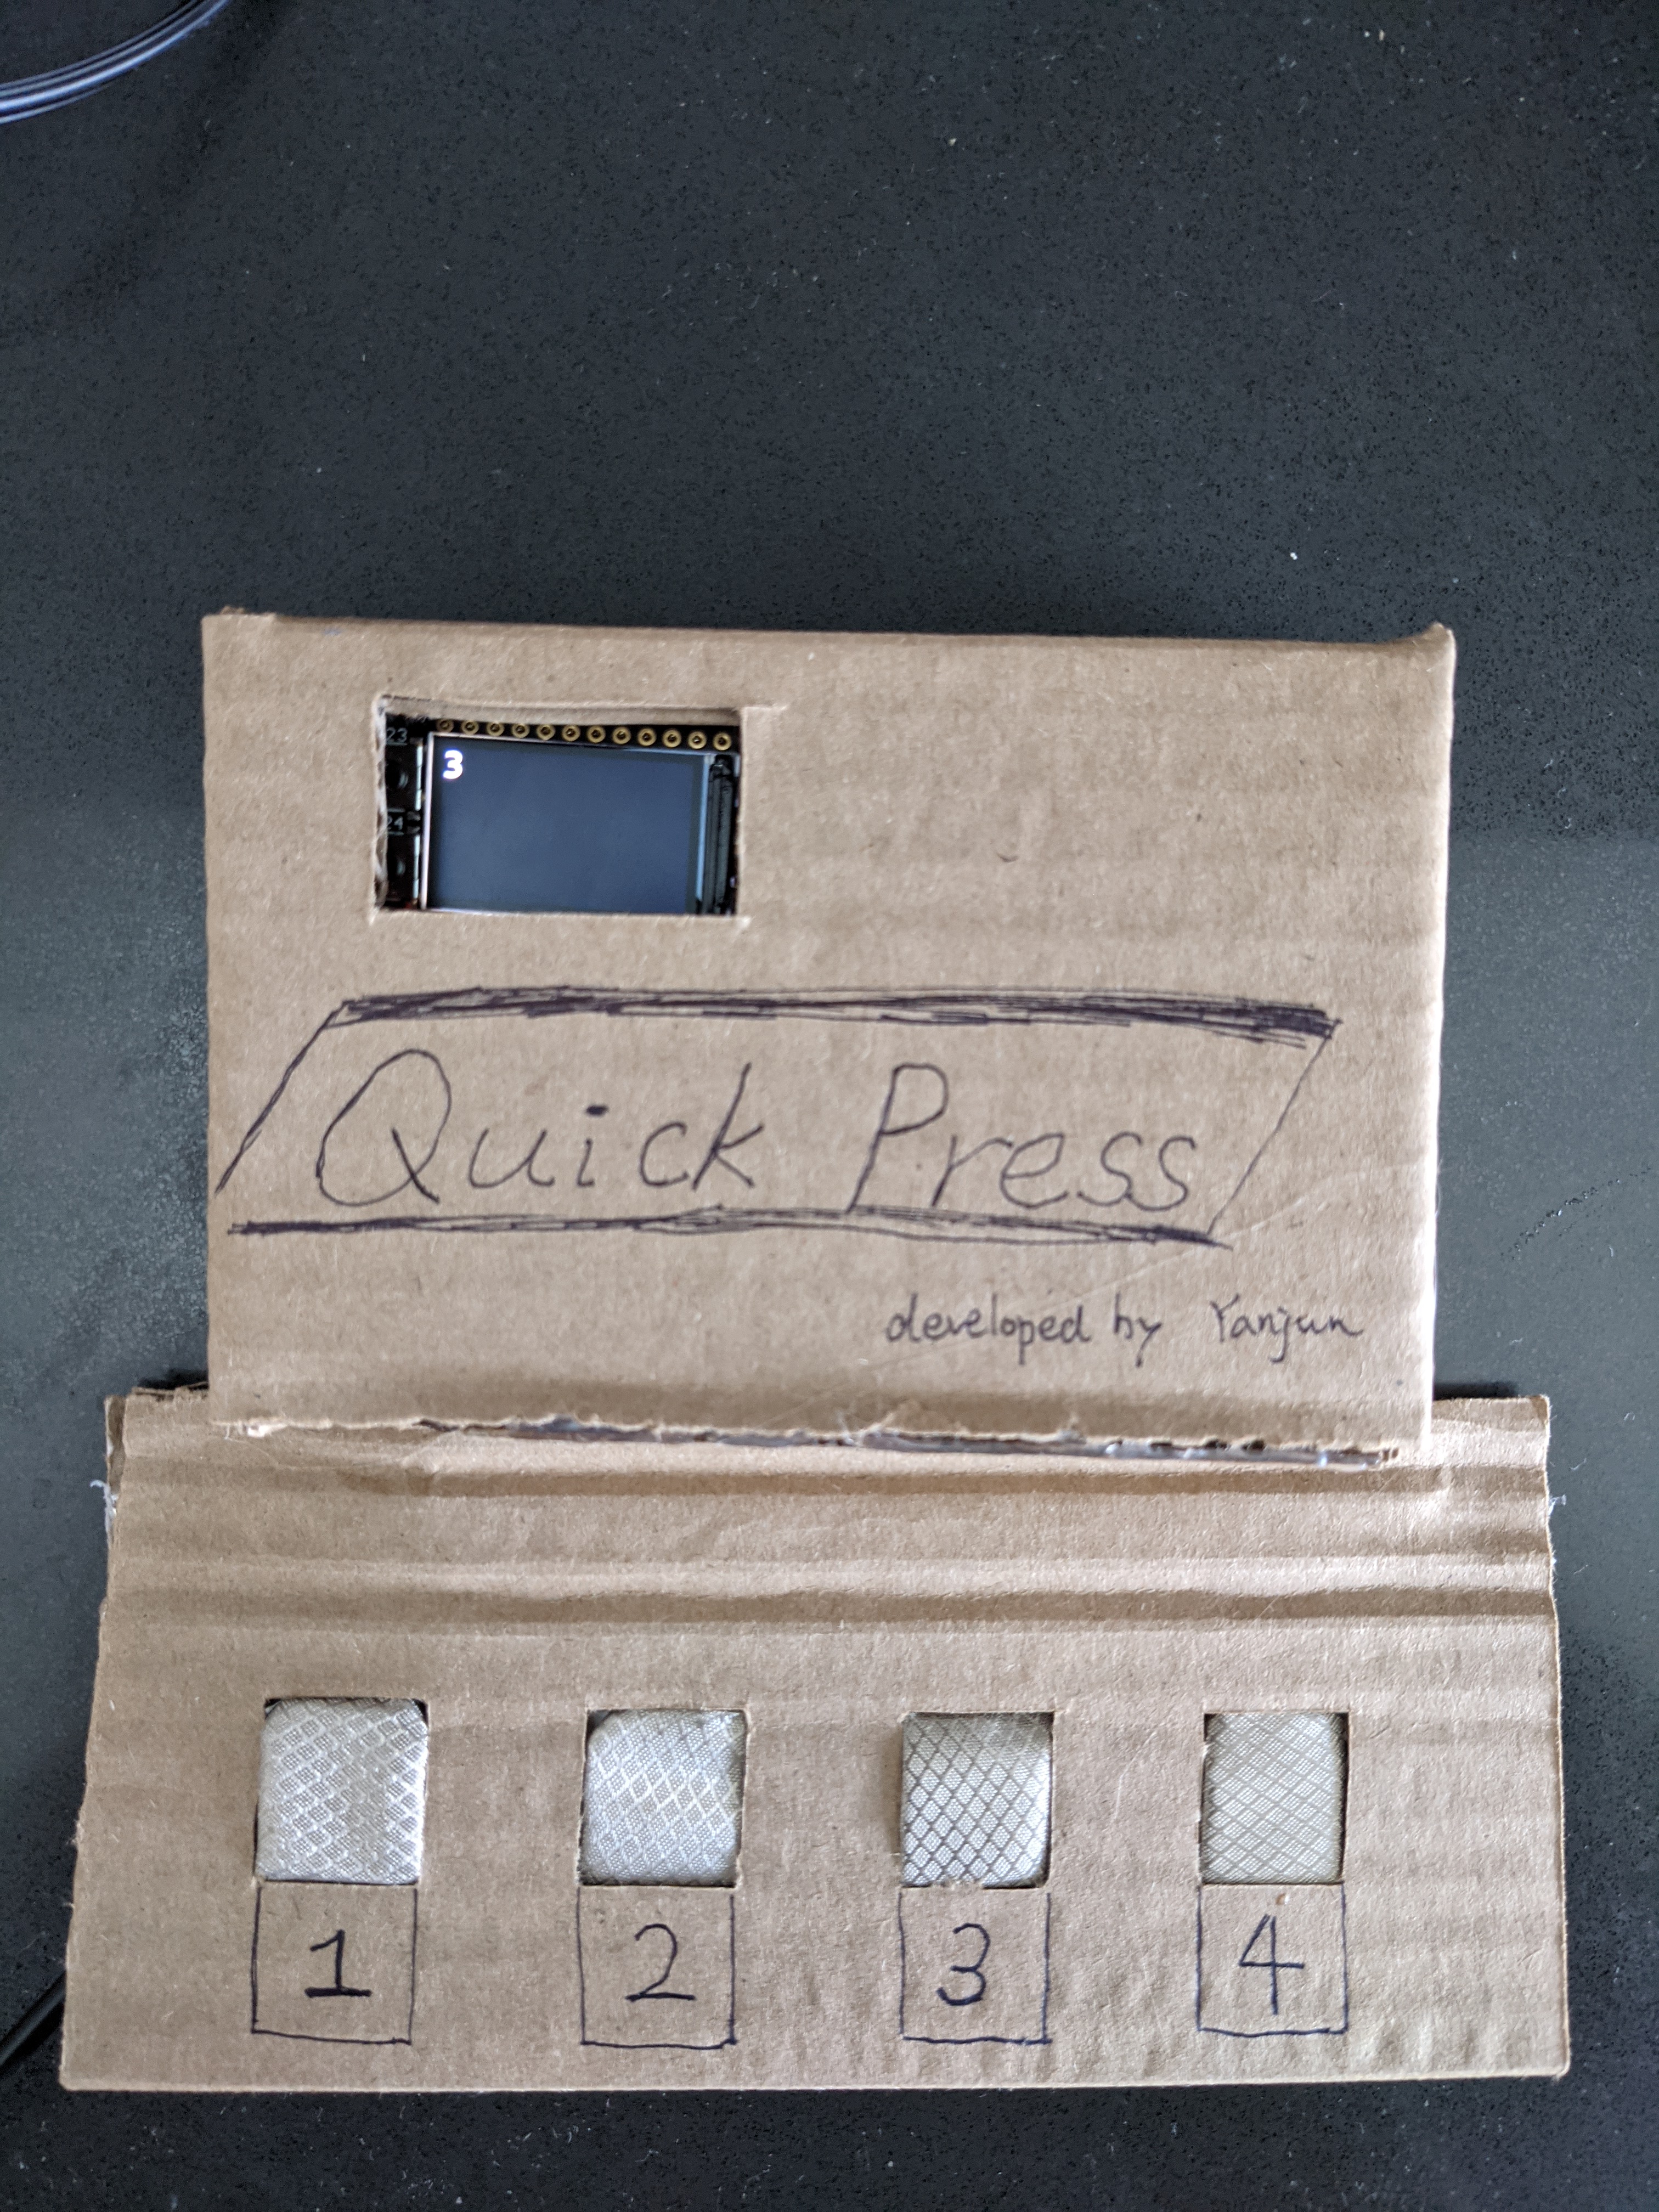 23
3
24
Quick Press
developed by Yanjun
1 2 3 4